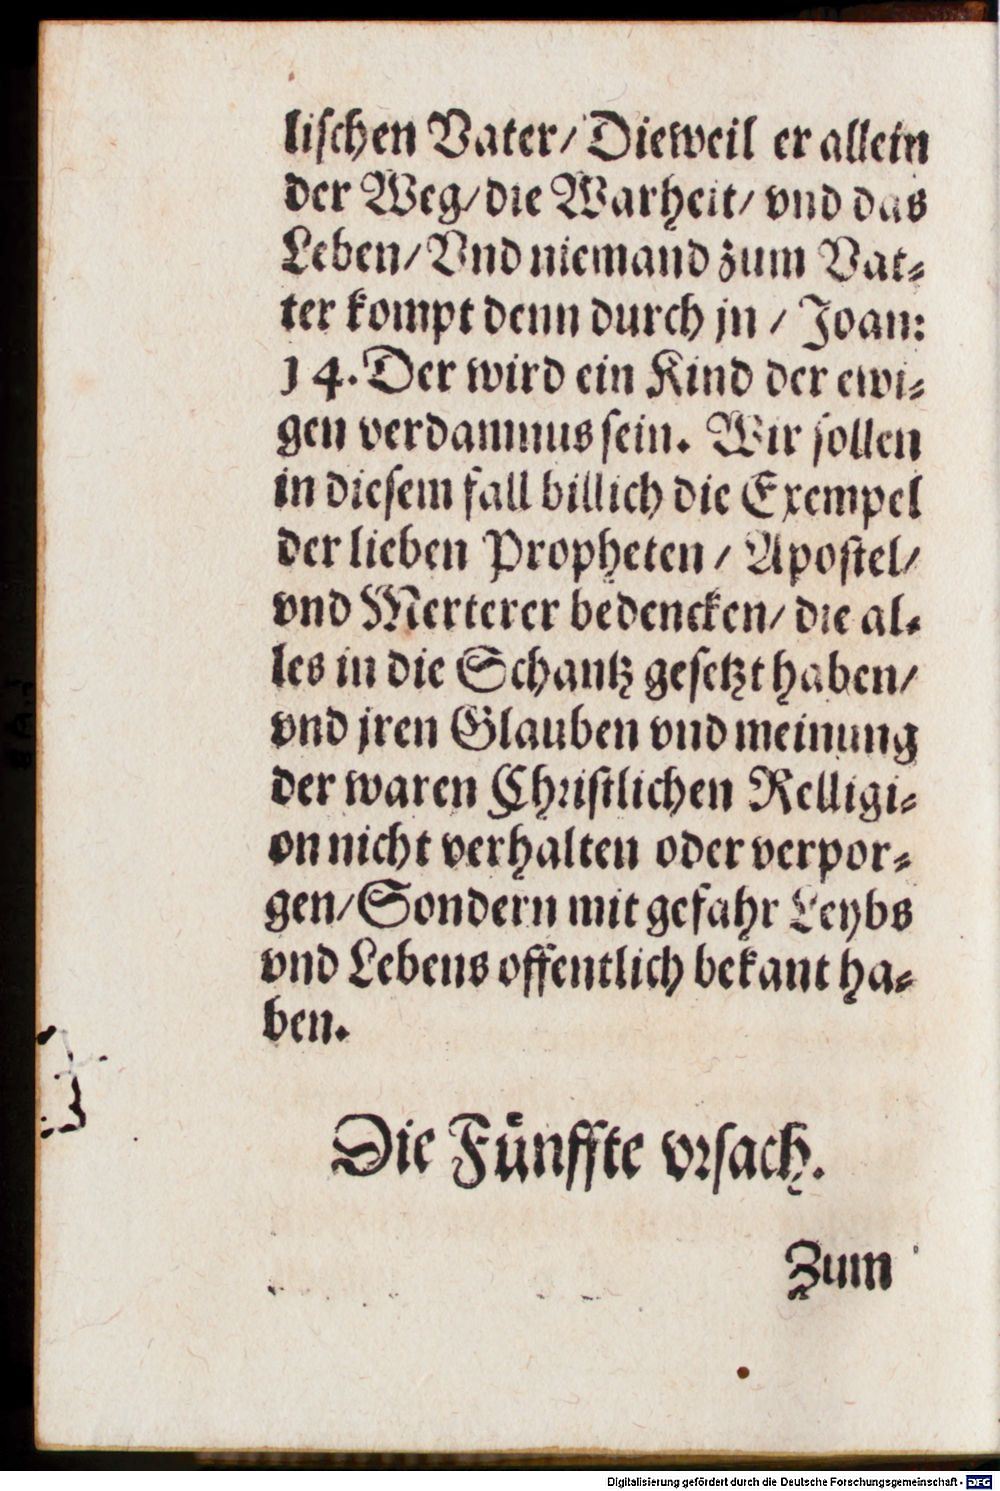 liſchen Vater/ Dieweil er allein
der Weg/ die Warheit/ vnd das
Leben/ Vnd niemand zum Vat⸗
ter kompt denn durch jn / Joan:
14. Der wird ein Kind der ewi⸗
gen verdamnus ſein. Wir ſollen
in dieſem fall billich die Exempel
der lieben Propheten / Apoſtel/
vnd Merterer bedencken/ die al⸗
les in die Schantz geſetzt haben/
vnd jren Glauben vnd meinung
der waren Chriſtlichen Relligi⸗
on nicht verhalten oder verpor⸗
gen/ Sondern mit gefahr Leybs
vnd Lebens offentlich bekant ha⸗
ben.
Die Fünffte vrſach.
Zum
Digitalisierung gefördert durch die Deutsche Forschungsgemeinschaft - DFG